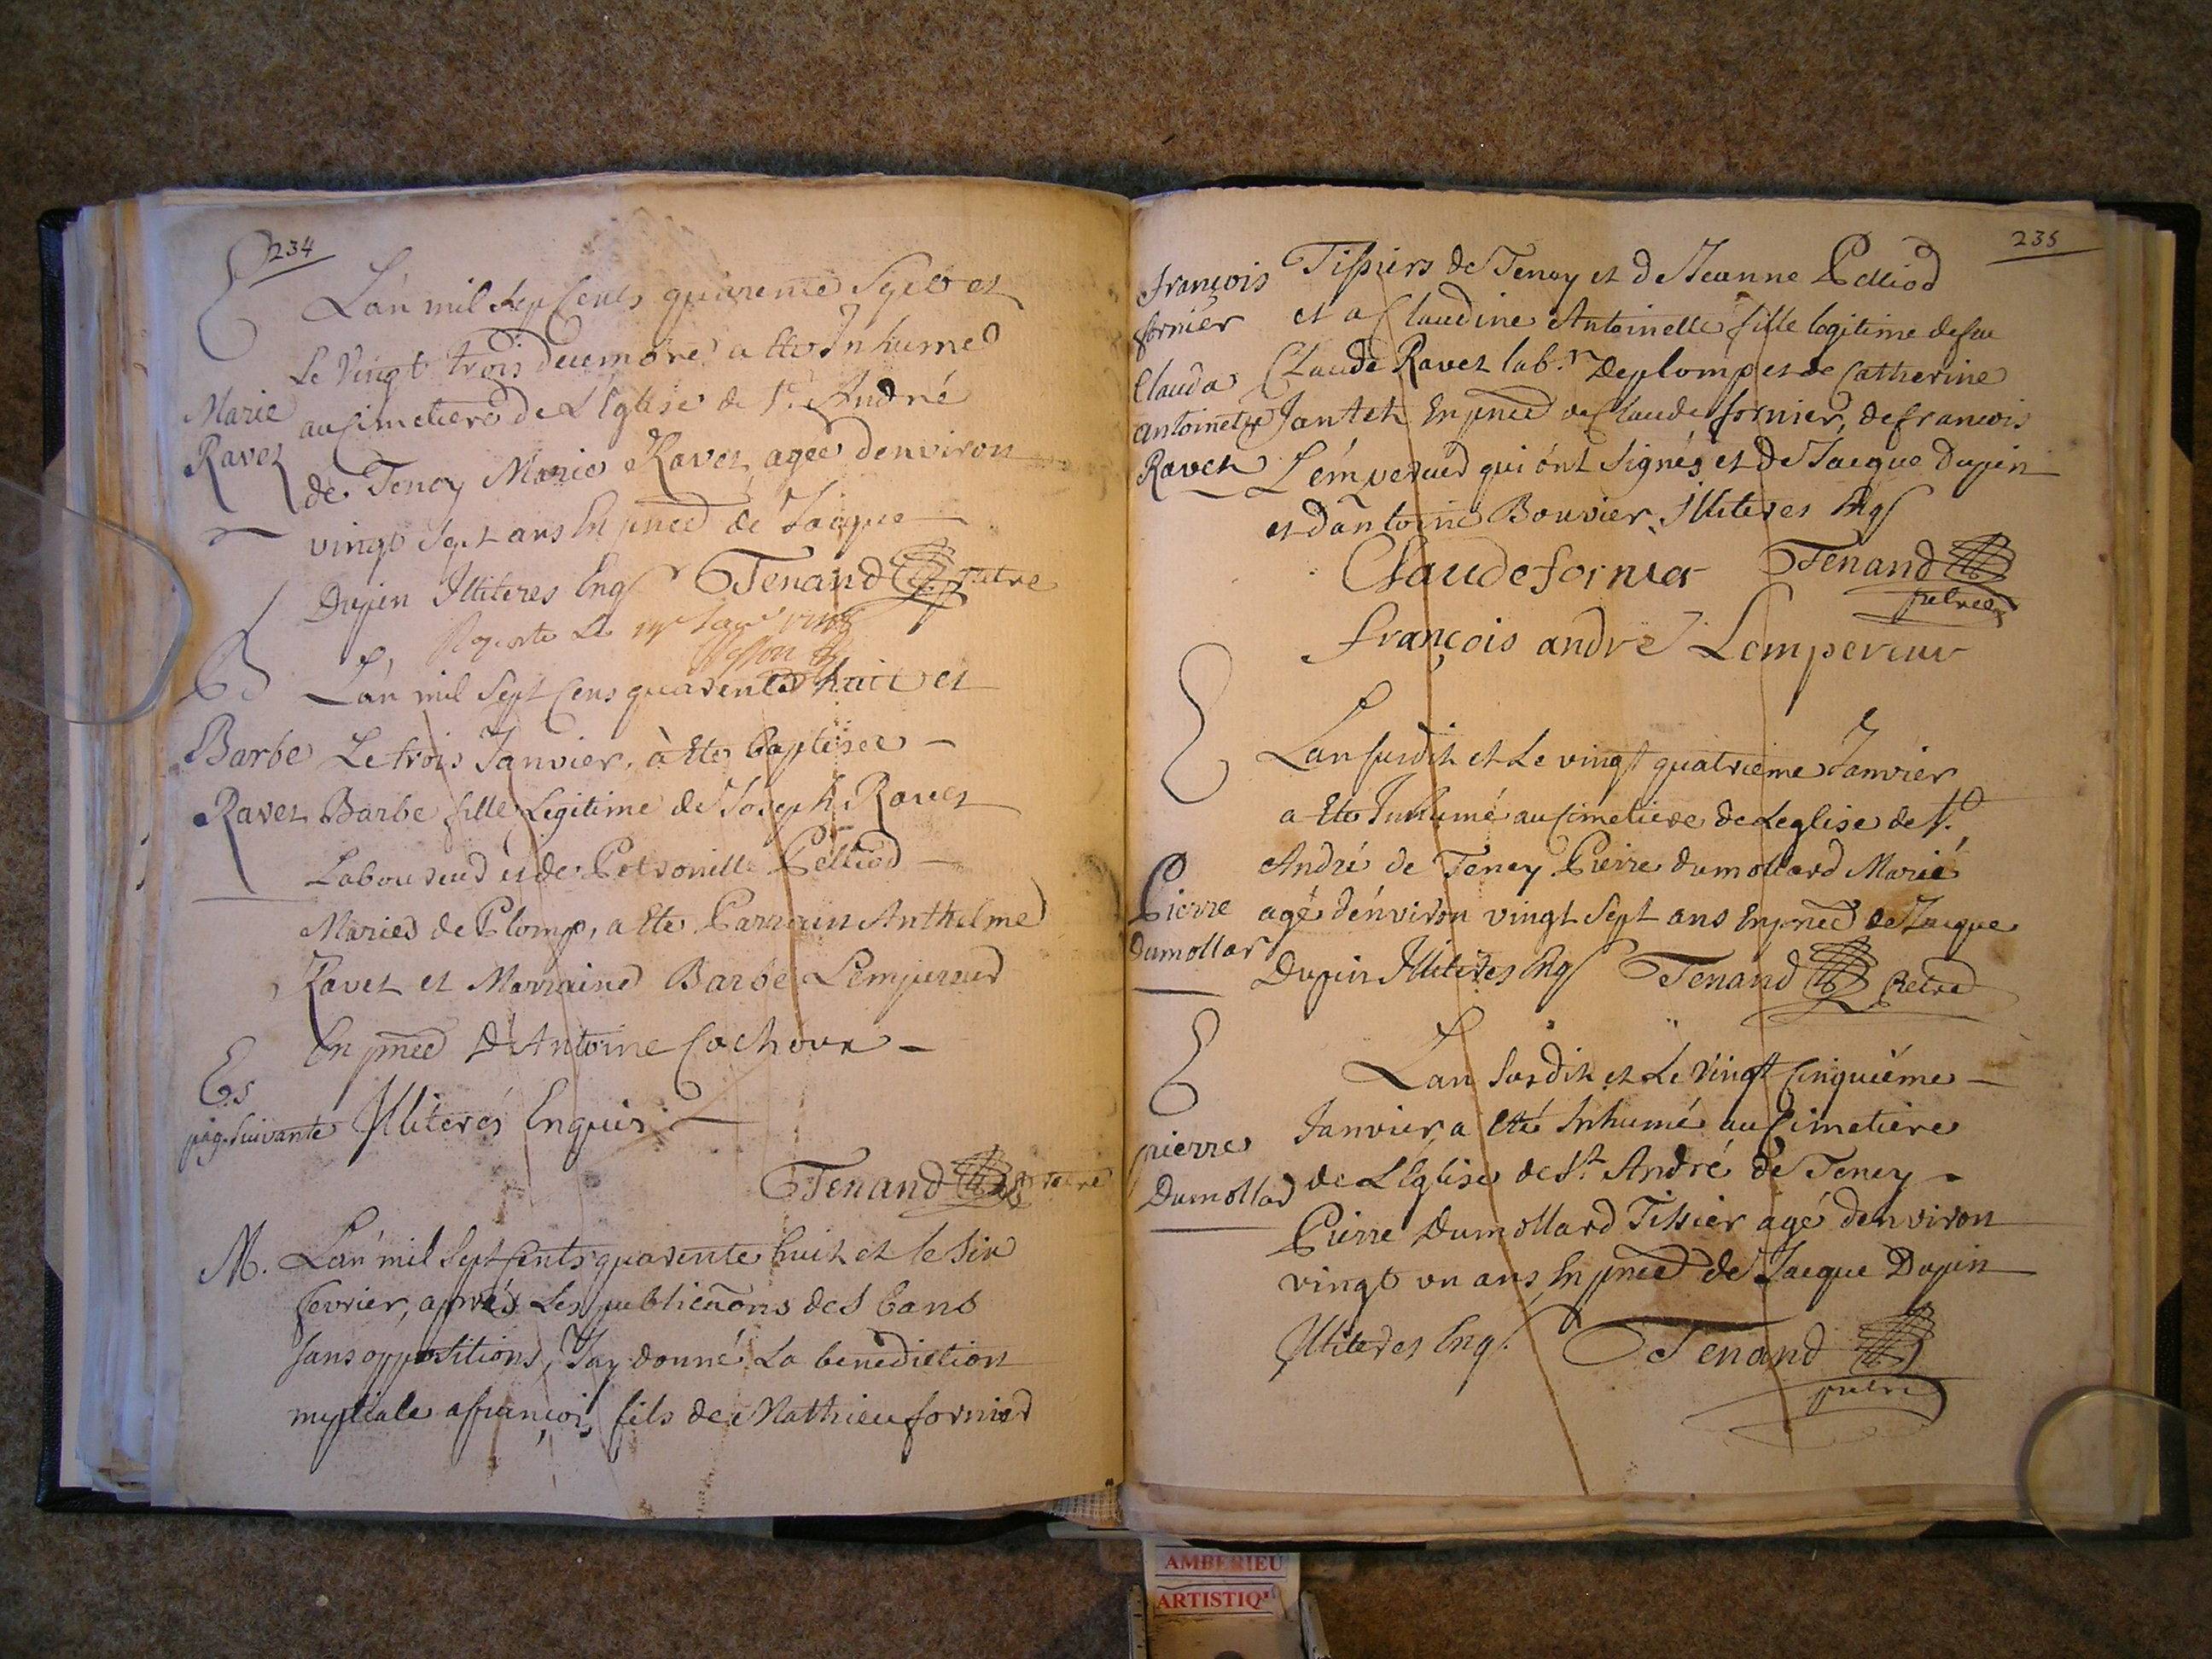 234
L'an mil sept cents quarente sept et
Le vingt trois decembre a ete Inhumé
Marie
au Cimetiere de L'Eglise de St. André
Ravet
de Tenay Marie Ravet agée denviron
vingt sept ans En pnce de Jacque
Dupin Illiteres Enq Tenand pretre
E,
B
L'an mil sept cens quarente huit et
Barbe
Le trois Janvier, à Ete baptisee -
Ravet
Barbe fille Legitime de Joseph Ravet
Laboureur et de Petronille Pelliod -
Mariés de Plomp, a ete Parrain Anthelme
Ravet et Marraine Barbe Lempereur
En pnce D'Antoine Cochoux -
Es
pag. suivante
Illiterés Enquis -
Tenand pretre
M. L'an mil sept cents quarente huit et le six
fevrier, aprés Les publicaons des bans
sans oppositions, J'ay donné La benediction
nuptiale a françois fils de Mathieu fornier
235
françois
fornier
Clauda
antoinette
Ravet
Tissiers de Tenay et de Jeanne Pelliod
et a Claudine Antoinette fille legitime de feu
Claude Ravet lab.r De plomp et de Catherine
Jantet En pnce de Claude fornier, de francois
Lempereur qui ónt signés et De Jacque Dupin
et D'antoine Bouvier Illiteres Enq
Claude fornier Tenand
pretre
françois andré Lempereur
Lan susdit et Le vingt quatrieme Janvier
a Ete Inhumé au Cimetiere de Leglise de St.
André de Tenay Pierre dumollard Marié
Pierre
dumollar
agé d'environ vingt sept ans En pnce de Jacque
Dupin Illiteres Enq Tenand Pretre
Lan Susdit et Le Vingt Cinquiéme -
Janvier, a Eté Inhumé au Cimetiere
pierre
Dumollad
de L'Eglise de St. André de Tenay -
Pierre Dumollard Tissier agé denviron
vingt un ans En pnce de Jacque Dupin
Illiteres Enq. Tenand
pretre
AMBERIEU
ARTISTIQ